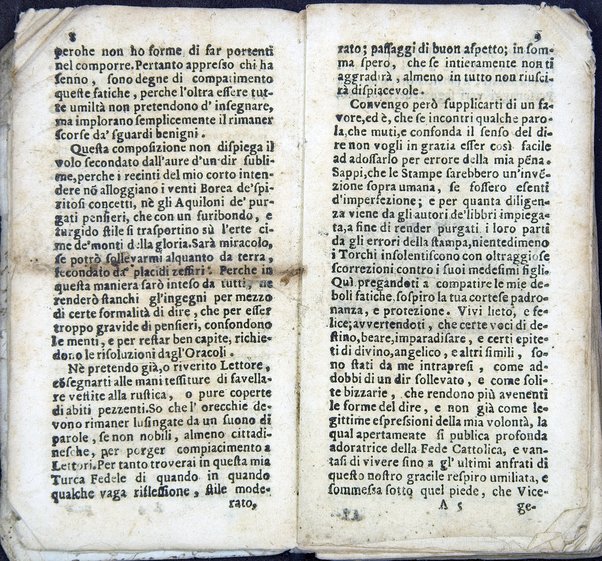 8
perche non ho forme di far portenti
nel comporre. Pertanto appresso chi ha
senno, sono degne di compatimento
queste fatiche, perche l'oltra essere tut-
te umiltà non pretendono d' insegnare,
ma implorano semplicemente il rimaner
scorse da' sguardi benigni.
Questa composizione non dispiega il
volo secondato dall'aure d'un dir subli-
me, perche i recinti del mio corto inten-
dere nõ alloggiano i venti Borea de'spi-
ritosi concetti, nè gli Aquiloni de' pur-
gati pensieri, che con un furibondo, e
turgido stile si trasportino sù l'erte ci-
me de'monti della gloria. Sarà miracolo,
se potrò sollevarmi alquanto da terra,
secondato da' placidi zeffiri. Perche in
questa maniera sarò inteso da tutti, ne
renderò stanchi gl'ingegni per mezzo
di certe formalità di dire, che per esser
troppo gravide di pensieri, confondono
le menti, e per restar ben capite, richie-
dono le risoluzioni dagl'Oracoli.
Nè pretendo già, o riverito Lettore,
consegnarti alle mani tessiture di favella-
re vestite alla rustica, o pure coperte
di abiti pezzenti. So che l' orecchie de-
vono rimaner lusingate da un suono di
parole, se non nobili, almeno cittadi-
nesche, per porger compiacimento a
Lettori. Per tanto troverai in questa mia
Turca Fedele di quando in quando
qualche vaga riflessione, stile mode-
rato,
9
rato; passaggi di buon aspetto; in som-
ma spero, che se intieramente non ti
aggradirà, almeno in tutto non riusci-
rà dispiacevole.
Convengo però supplicarti di un fa-
vore, ed è, che se incontri qualche paro-
la, che muti, e confonda il senso del di-
re non vogli in grazia esser così facile
ad adossarlo per errore della mia pẽna.
Sappi, che le Stampe sarebbero un'invẽ-
zione sopra umana, se fossero esenti
d'imperfezione; e per quanta diligen-
za viene da gli autori de'libbri impiega-
ta, a fine di render purgati i loro parti
da gli errori della stampa, nientedimeno
i Torchi insolentiscono con oltraggiose
scorrezioni contro i suoi medesimi figli.
Quì pregandoti a compatire le mie de-
boli fatiche. sospiro la tua cortese padro-
nanza, e protezione. Vivi lieto, e fe-
lice; avvertendoti, che certe voci di de-
stino, beare, imparadisare, e certi epite-
ti di divino, angelico, e altri simili, so-
no stati da me intrapresi, come ad-
dobbi di un dir sollevato, e come soli-
te bizzarie, che rendono più avvenenti
le forme del dire, e non già come le-
gittime espressioni della mia volontà, la
qual apertamente si publica profonda
adoratrice della Fede Cattolica, e van-
tasi di vivere sino a gl' ultimi anfrati di
questo nostro gracile respiro umiliata, e
sommessa sotto quel piede, che Vice-
A 5 ge-